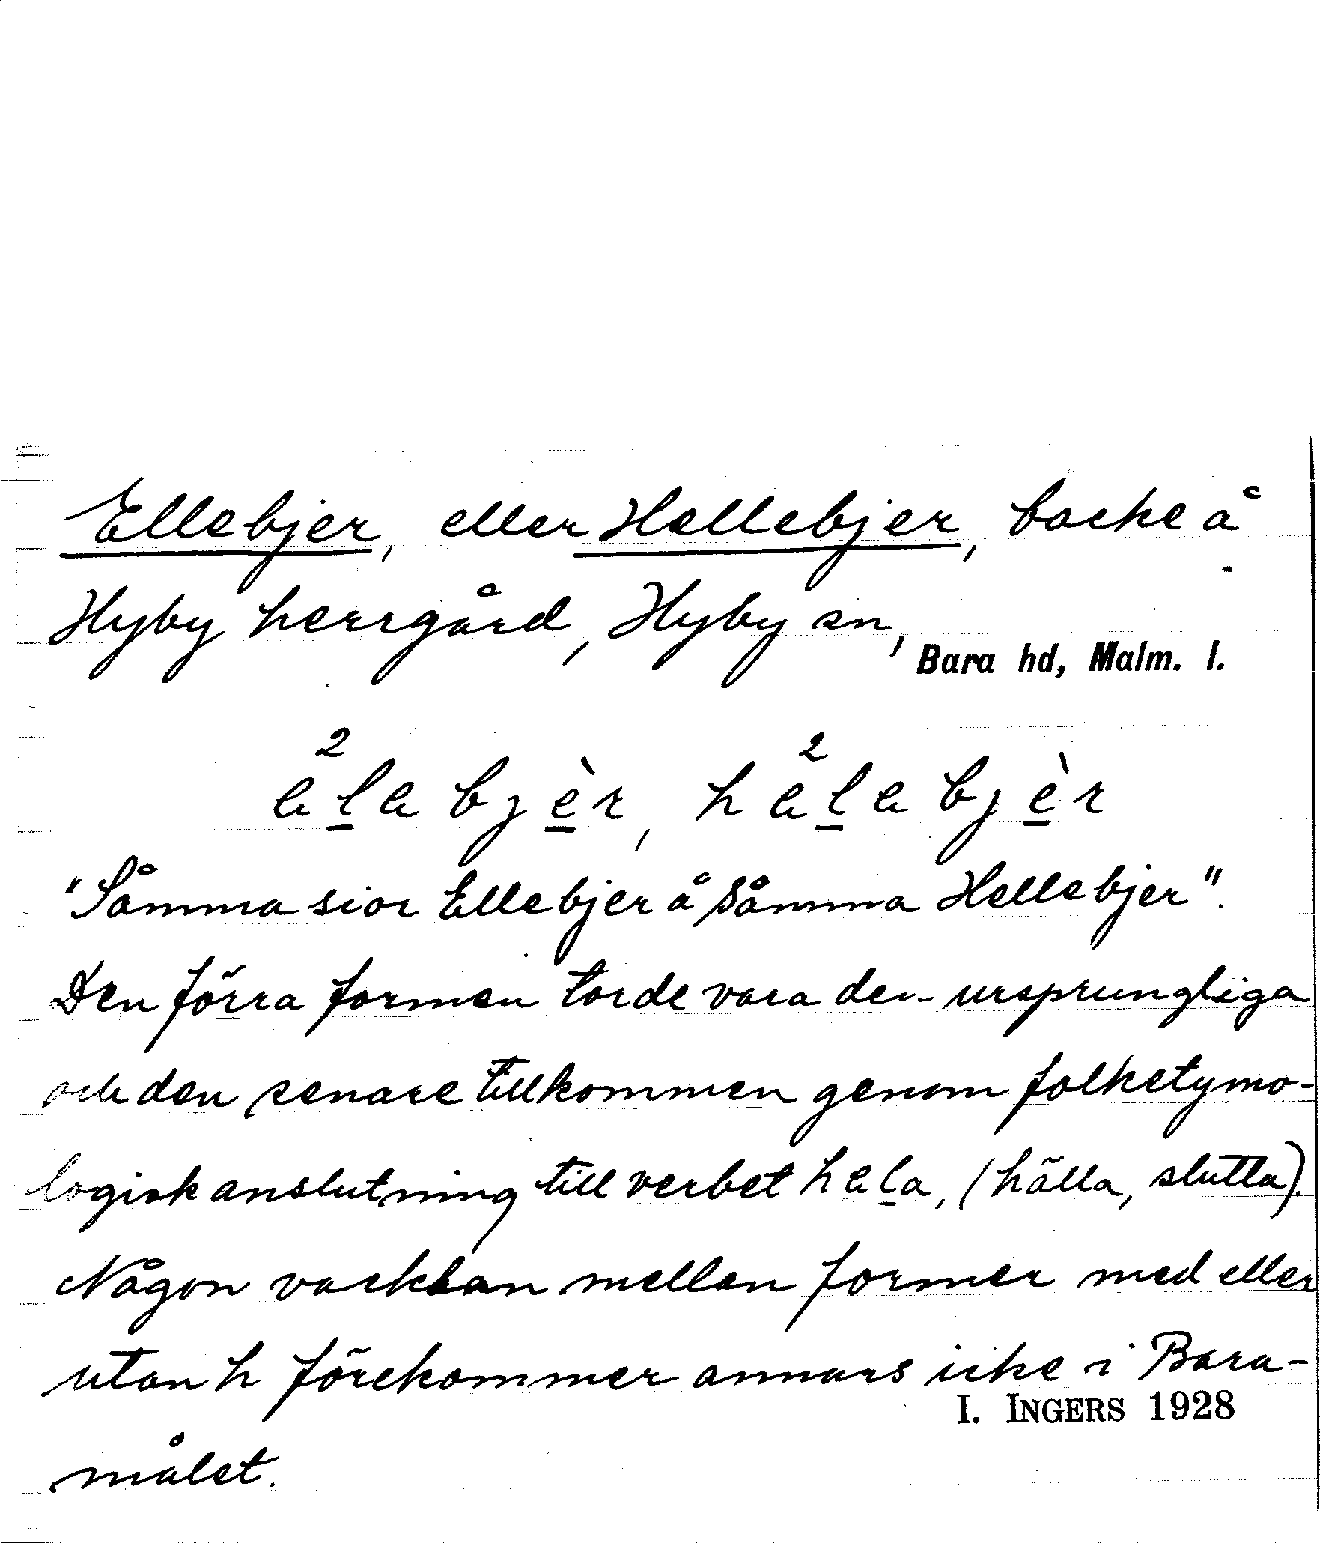 Ellebjer, eller Hellebjer, backe å
Hyby herrgård, Hyby sn,
Bara hd, Malm. l.
²ḁlabjèr, h²ḁlabjèr
"Såmma sior Ellebjer å såmma Hellebjer".
Den förra formen torde vara den ursprungliga
och den senare tillkommen genom folketymo-
logisk anslutning till verbet hela, (hälla, slutta).
Någon växlan mellan former med eller
utan h förekommer annars icke i Bara-
I. INGERS 1928
målet.